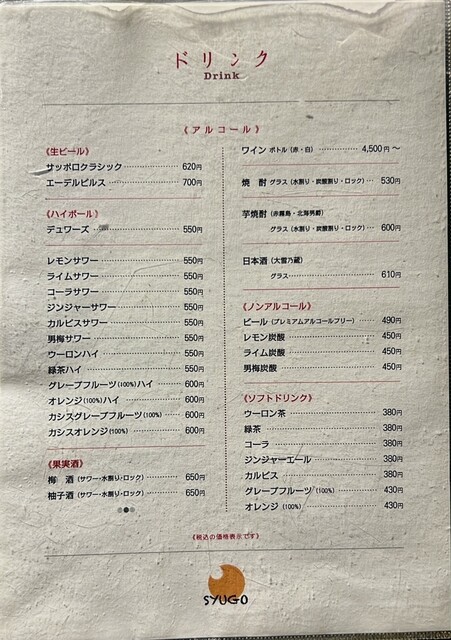 ドリンク
Drink
《アルコール》
《生ビール》
サッポロクラシック 620円
エーデルピルス 700円
《ハイボール》
デュワーズ 550円
レモンサワー 550円
ライムサワー 550円
コーラサワー 550円
ジンジャーサワー 550円
カルピスサワー 550円
男梅サワー 550円
ウーロンハイ 550円
緑茶ハイ 550円
グレープフルーツ(100%)ハイ 600円
オレンジ(100%)ハイ 600円
カシスグレープフルーツ(100%) 600円
カシスオレンジ(100%) 600円
《果実酒》
梅 酒(サワー・水割り・ロック) 650円
柚子酒(サワー・水割り・ロック) 650円
ワイン ボトル(赤・白) 4,500円～
焼 酎 グラス(水割り・炭酸割り・ロック) 530円
芋焼酎(赤霧島・北海男爵)
グラス(水割り・炭酸割り・ロック) 600円
日本酒(大雪乃蔵)
グラス 610円
《ノンアルコール》
ビール(プレミアムアルコールフリー) 490円
レモン炭酸 450円
ライム炭酸 450円
男梅炭酸 450円
《ソフトドリンク》
ウーロン茶 380円
緑茶 380円
コーラ 380円
ジンジャーエール 380円
カルピス 380円
グレープフルーツ(100%) 430円
オレンジ(100%) 430円
《税込の価格表示です》
SYUGO